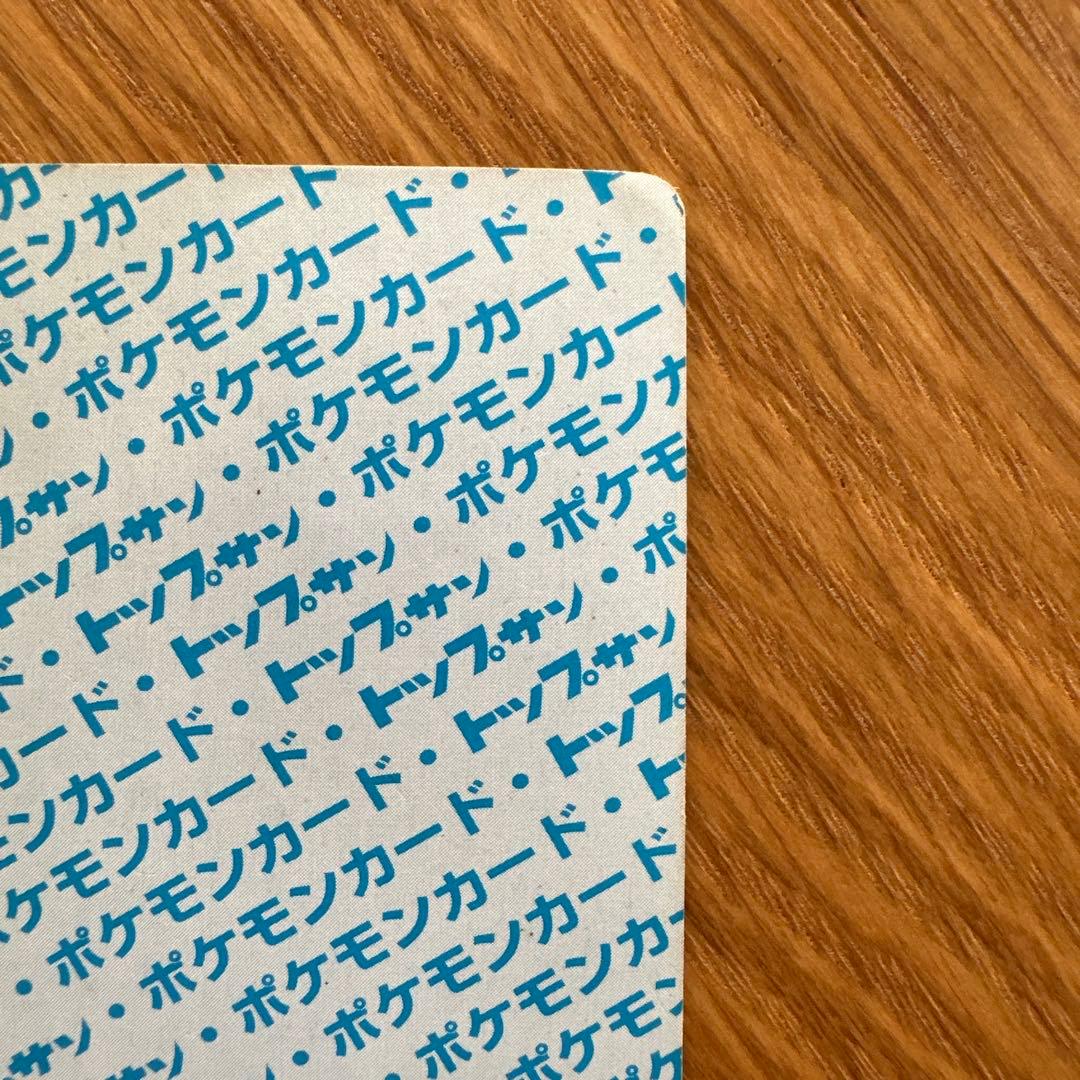 カー
モンカード
ポケモンカード
ン・ポケモンカード・
プサン・ポケモンカード・ト
トップサン・ポケモンカード・
ド・トップサン・ポケモンカード
カード・トップサン・ポケモンカ
モンカード・トップサン・ポケモ
ケモンカード・トップサン・ポ
・ポケモンカード・トップサン
サン・ポケモンカード・トップ
ン・ポケモンカード・ト
・ポケモンカード
ポケモンカー
ポケモン
ポケ